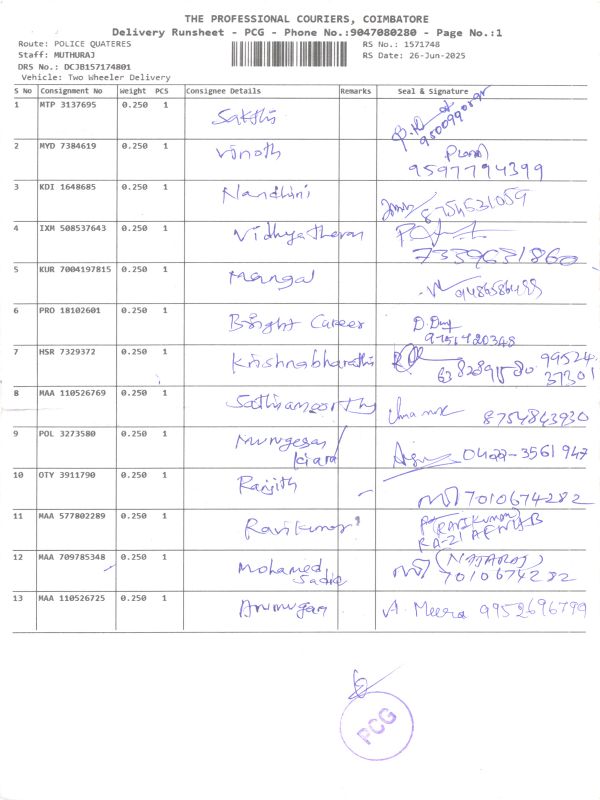 THE PROFESSIONAL COURIERS, COIMBATORE
Delivery Runsheet - PCG - Phone No.:9047080280 - Page No.:1
Route: POLICE QUATERES
RS No.: 1571748
Staff: MUTHURAJ
RS Date: 26-Jun-2025
DRS No.: DCJB157174801
Vehicle: Two Wheeler Delivery
S No Consignment No Weight PCS Consignee Details Remarks Seal & Signature
1 MTP 3137695 0.250 1 Sakthi
2 MYD 7384619 0.250 1 Vinoth
9597794399
3 KDI 1648685 0.250 1 Nandhini 8754531059
4 IXM 508537643 0.250 1 Vidhyatharan
7339631860
5 KUR 7004197815 0.250 1 Mangal
6 PRO 18102601 0.250 1 Bright Career
7 HSR 7329372 0.250 1 Krishnabharathi 99524
37301
8 MAA 110526769 0.250 1 Sathiamoorthy 8754843930
9 POL 3273580 0.250 1 Murugesan 0422-3561947
Kiara
10 OTY 3911790 0.250 1 Ranjith 7010674282
11 MAA 577802289 0.250 1 Ravikumar (RAVIKUMAR)
12 MAA 709785348 0.250 1 Mohamed (NATARAJ)
Sadiq 7010674282
13 MAA 110526725 0.250 1 Arumugam A. Meera 9952696799
PCG